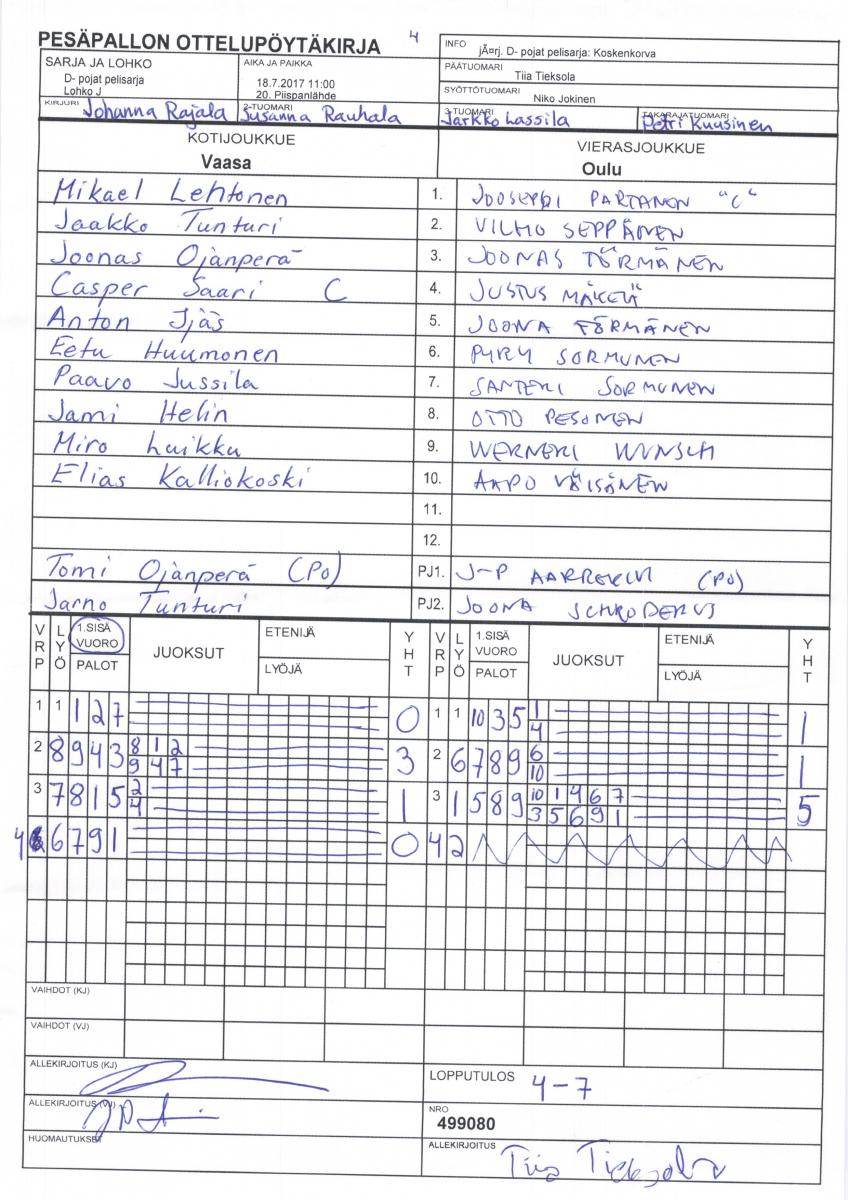 PESÄPALLON OTTELUPÖYTÄKIRJA 4
INFO jÃ¤rj. D- pojat pelisarja: Koskenkorva
SARJA JA LOHKO
D- pojat pelisarja
Lohko J
AIKA JA PAIKKA
18.7.2017 11:00
20. Piispanlähde
PÄÄTUOMARI
Tiia Tieksola
SYÖTTÖTUOMARI
Niko Jokinen
KIRJURI Johanna Rajala
2-TUOMARI Susanna Rauhala
3-TUOMARI Jarkko Lassila
TAKARAJATUOMARI Petri Kuusinen
KOTIJOUKKUE VIERASJOUKKUE
Vaasa Oulu
Mikael Lehtonen 1. JOOSEPPI PARTANEN "C"
Jaakko Tunturi 2. VILHO SEPPÄNEN
Joonas Ojanperä 3. JOONAS TÖRMÄNEN
Casper Saari C 4. JUSTUS MÄKELÄ
Anton Ijäs 5. JOONA TÖRMÄNEN
Eetu Huumonen 6. PYRY SORMUNEN
Paavo Jussila 7. SANTERI SORMUNEN
Jami Helin 8. OTTO PESONEN
Miro Luikku 9. WERNERI WUNSCH
Elias Kalliokoski 10. AAPO VÄISÄNEN
11.
12.
Tomi Ojanperä (PO) PJ1. J-P (PO)
Jarno Tunturi PJ2. JOONA SCHRODERUS
VRP LYÖ 1.SISÄ VUORO PALOT JUOKSUT ETENIJÄ LYÖJÄ YHT VRP LYÖ 1.SISÄ VUORO PALOT JUOKSUT ETENIJÄ LYÖJÄ YHT
1 1 1 2 7 0 1 1 10 3 5 1 1
4
2 8 9 4 3 8 1 2 3 2 6 7 8 9 6 1
9 4 7 10
3 7 8 1 5 2 1 3 1 5 8 9 10 1 4 6 7 5
4 3 5 6 9 1
4 6 7 9 1 0 4 2
VAIHDOT (KJ)
VAIHDOT (VJ)
ALLEKIRJOITUS (KJ)
LOPPUTULOS 4-7
ALLEKIRJOITUS (VJ)
NRO
499080
HUOMAUTUKSET
ALLEKIRJOITUS
Tiia Tieksola